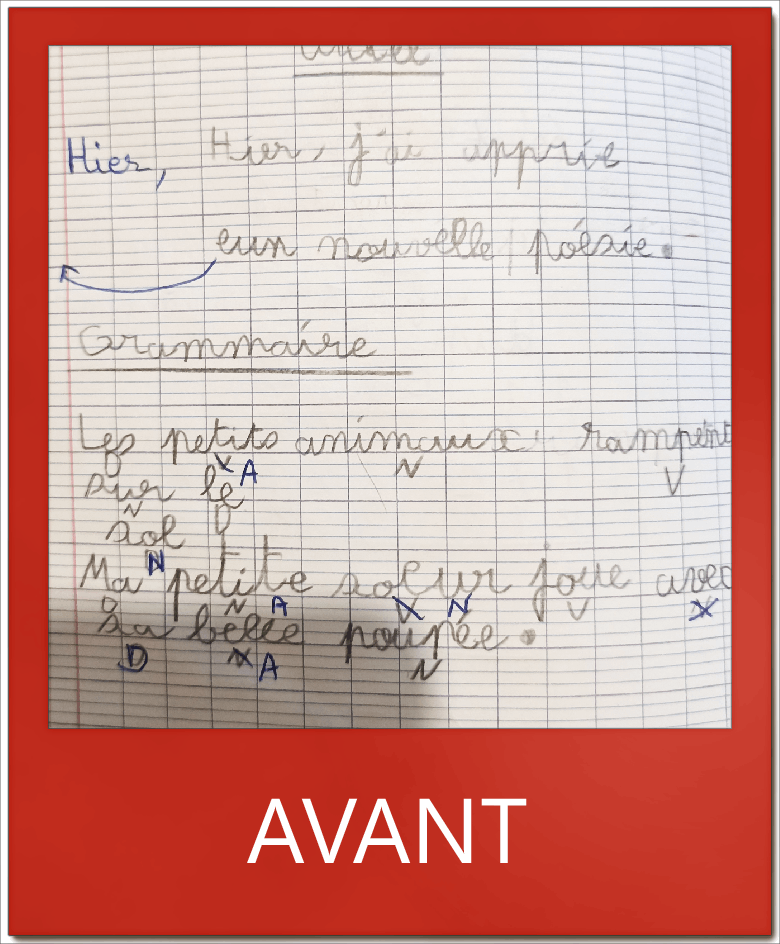 Hier, Hier, j'ai appris
eun nouvelle poésie.
Grammaire
Les petits animaux rampent
D X A N V
sur le
N D
sol
N
Ma petite soeur joue avec
D N A V N V X
sa belle poupée.
D N A N
AVANT